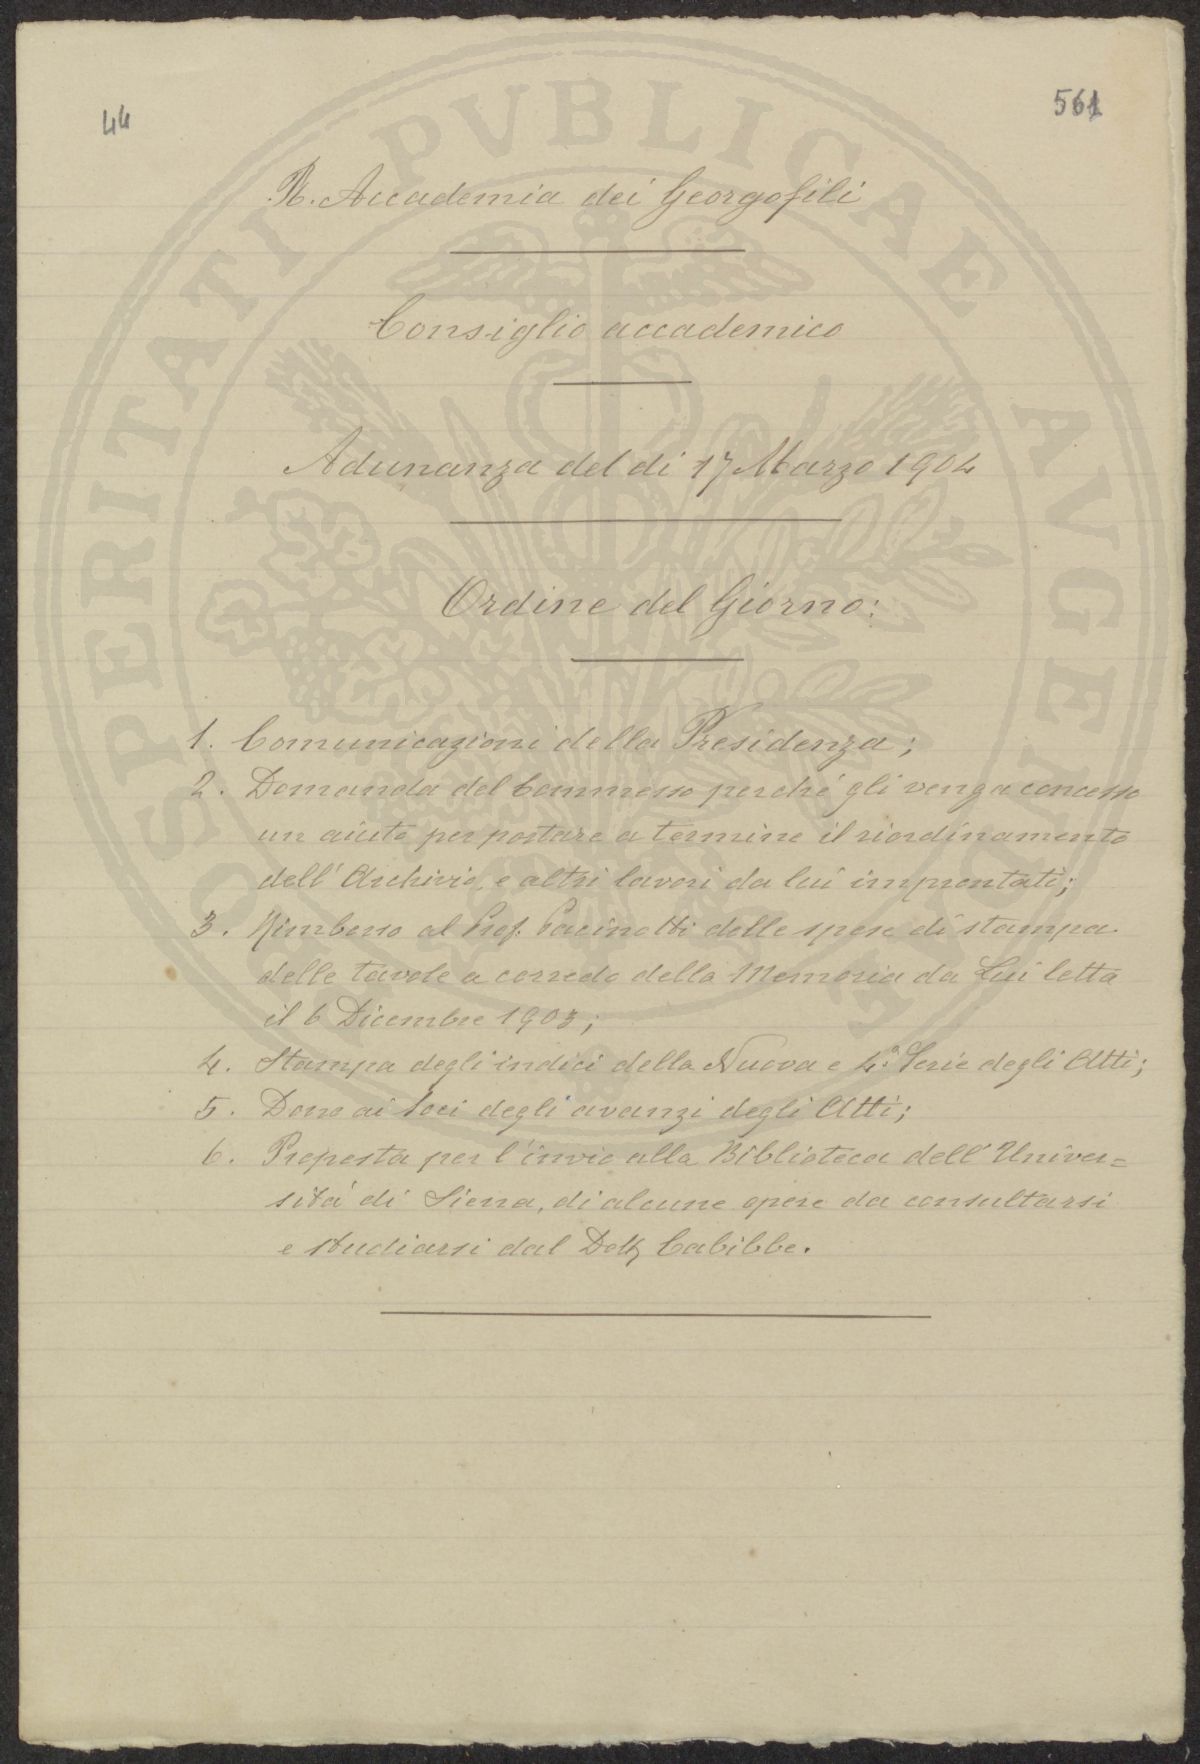 44
561
R. Accademia dei Georgofili
Consiglio accademico
Adunanza del dì 17 Marzo 1904
Ordine del Giorno:
1. Comunicazioni della Presidenza;
2. Domanda del Commesso perché gli venga concesso
un aiuto per portare a termine il riordinamento
dell'Archivio, e altri lavori da lui imprentati;
3. Rimborso al Prof. Pacinotti delle spese di stampa
delle tavole a corredo della Memoria da Lui letta
il 6 Dicembre 1903;
4. Stampa degli indici della Nuova e 4.a Serie degli Atti;
5. Dono ai Soci degli avanzi degli Atti;
6. Proposta per l'invio alla Biblioteca dell'Univer=
sità di Siena, di alcune opere da consultarsi
e studiarsi dal Dott. Cabibbe.
PROSPERITATI PVBLICAE AVGENDAE